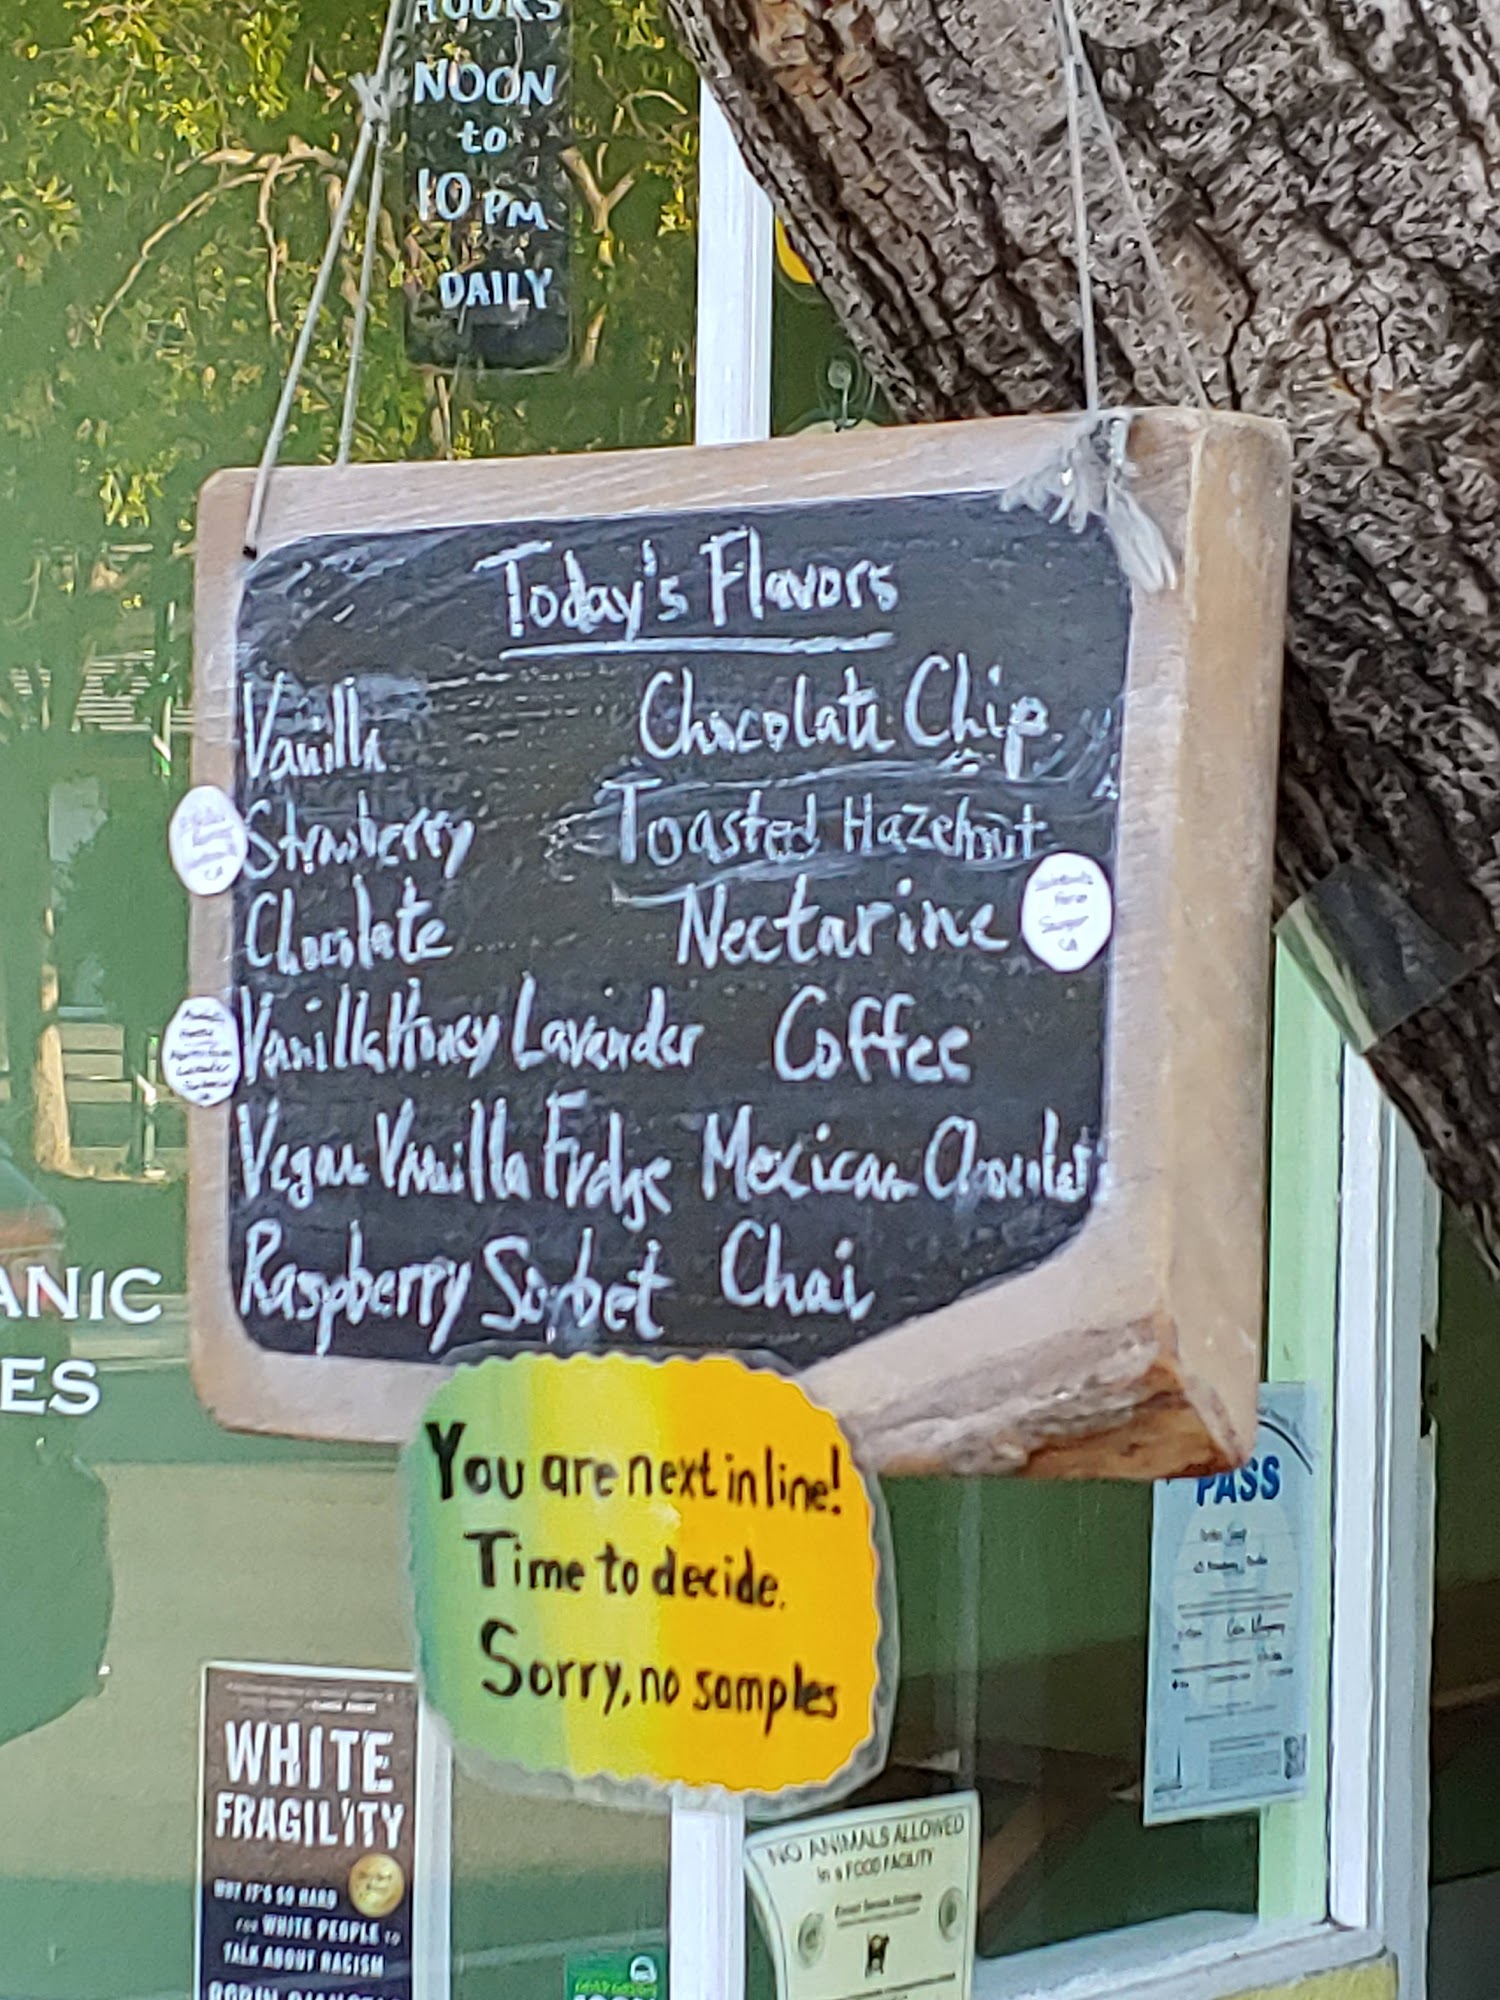 HOURS
NOON
to
10 PM
DAILY
Today's Flavors
Vanilla
Chocolate Chip
Strawberry
Toasted Hazelnut
Chocolate
Nectarine
Vanilla Honey Lavender
Coffee
Vegan Vanilla Fudge
Mexican Chocolat
Raspberry Sorbet
Chai
ANIC
ES
You are next in line!
Time to decide.
Sorry, no samples
PASS
WHITE
FRAGILITY
WHY IT'S SO HARD
FOR WHITE PEOPLE TO
TALK ABOUT RACISM
NO ANIMALS ALLOWED
In a FOOD FACILITY